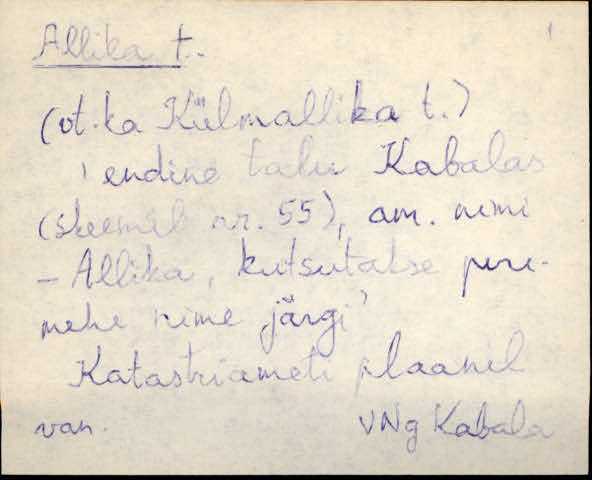 Allika t.
(vt. ka Külmallika t.)
'endine talu Kabalas
(skeemil nr. 55), am. nimi
- Allika, kutsutakse pere-
mehe nime järgi'
Katastriameti plaanil
van. VNg Kabala